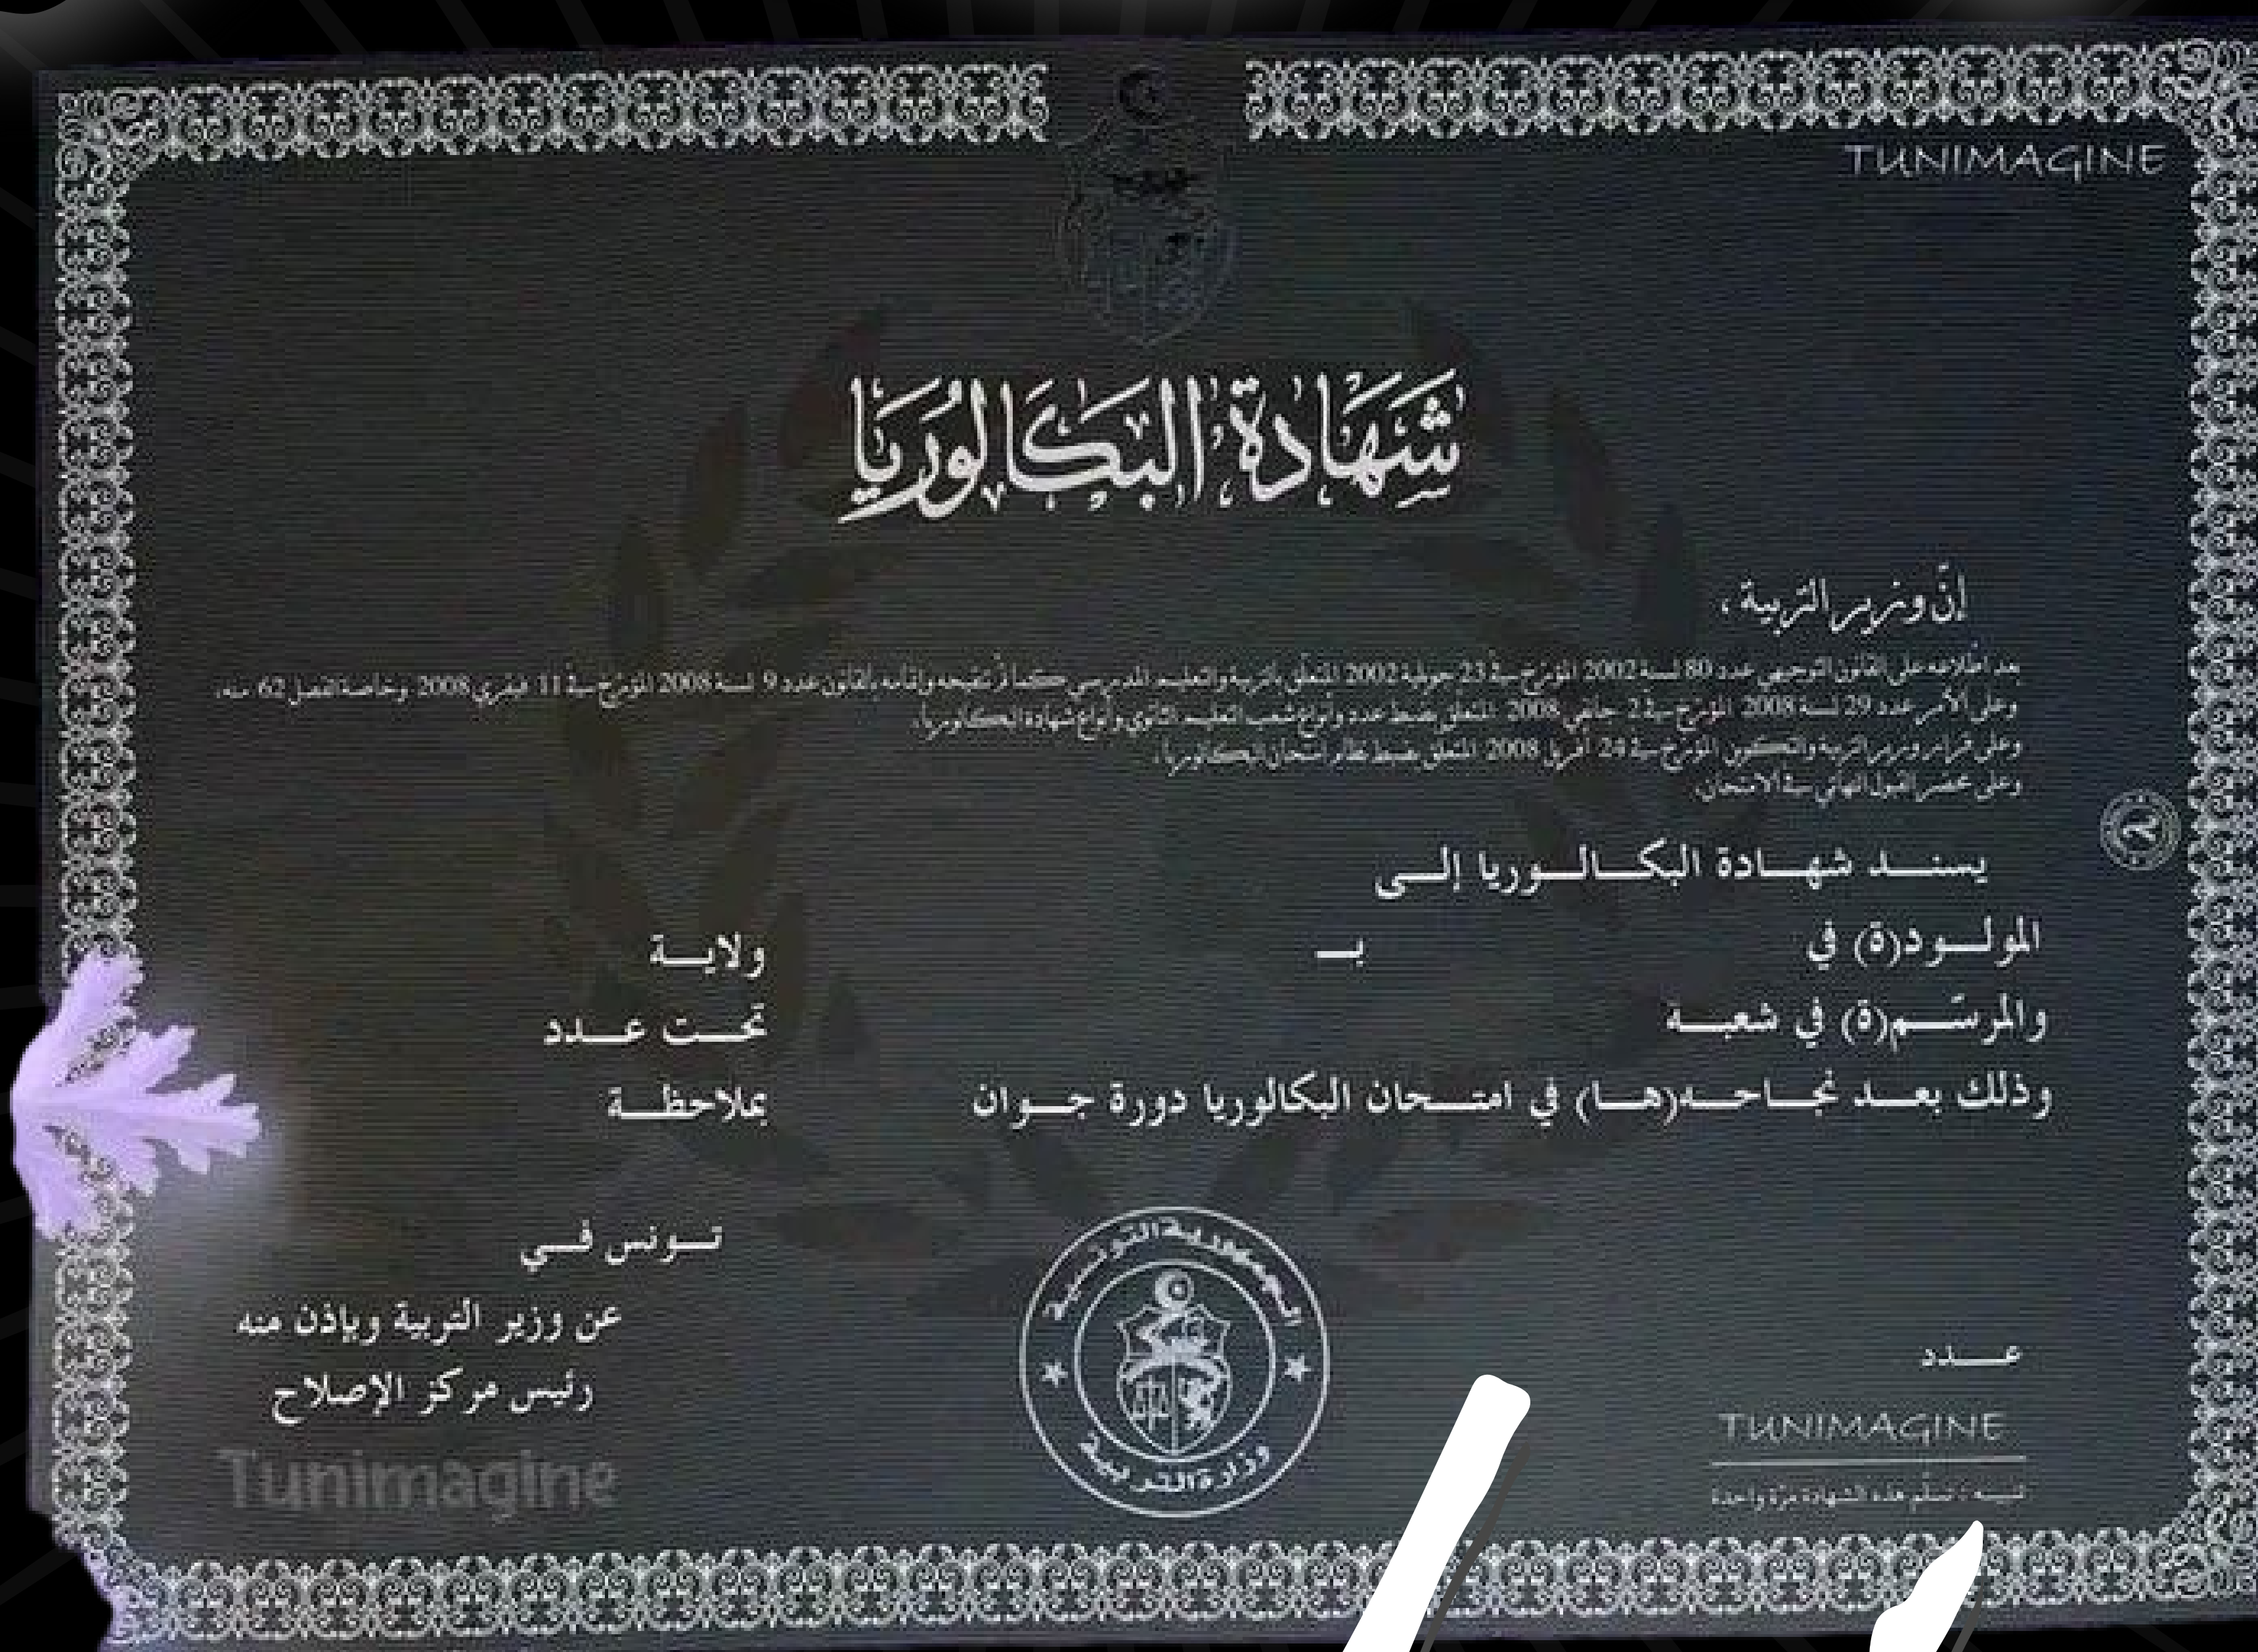 TUNIMAGINE
شَهَادَة البَكَالُورِيَا
إنّ وزير التربية ،
بعد اطّلاعه على القانون التوجيهي عدد 80 لسنة 2002 المؤرّخ في 23 جويلية 2002 المتعلّق بالتربية والتعليم المدرسي كما تمّ تنقيحه وإتمامه بالقانون عدد 9 لسنة 2008 المؤرّخ في 11 فيفري 2008 وخاصة الفصل 62 منه،
وعلى الأمر عدد 29 لسنة 2008 المؤرّخ في 2 جانفي 2008 المتعلق بضبط عدد وأنواع شعب التعليم الثانوي وأنواع شهادة البكالوريا،
وعلى قرار وزير التربية والتكوين المؤرّخ في 24 أفريل 2008 المتعلق بضبط نظام امتحان البكالوريا،
وعلى محضر القبول النهائي في الامتحان،
يسنـد شهـادة البكـالـوريا إلـى
المولـود(ة) في بـ ولايـة
والمرسّـم(ة) في شعبـة تحـت عـدد
وذلك بعـد نجـاحـه(هـا) في امتـحان البكالوريا دورة جـوان بملاحظـة
تـونس فـي
عن وزير التربية وبإذن منه
رئيس مركز الإصلاح
Tunimagine
الجمهورية التونسية
وزارة التربية
عـدد
TUNIMAGINE
تنبيه : تسلّم هذه الشهادة مرّة واحدة